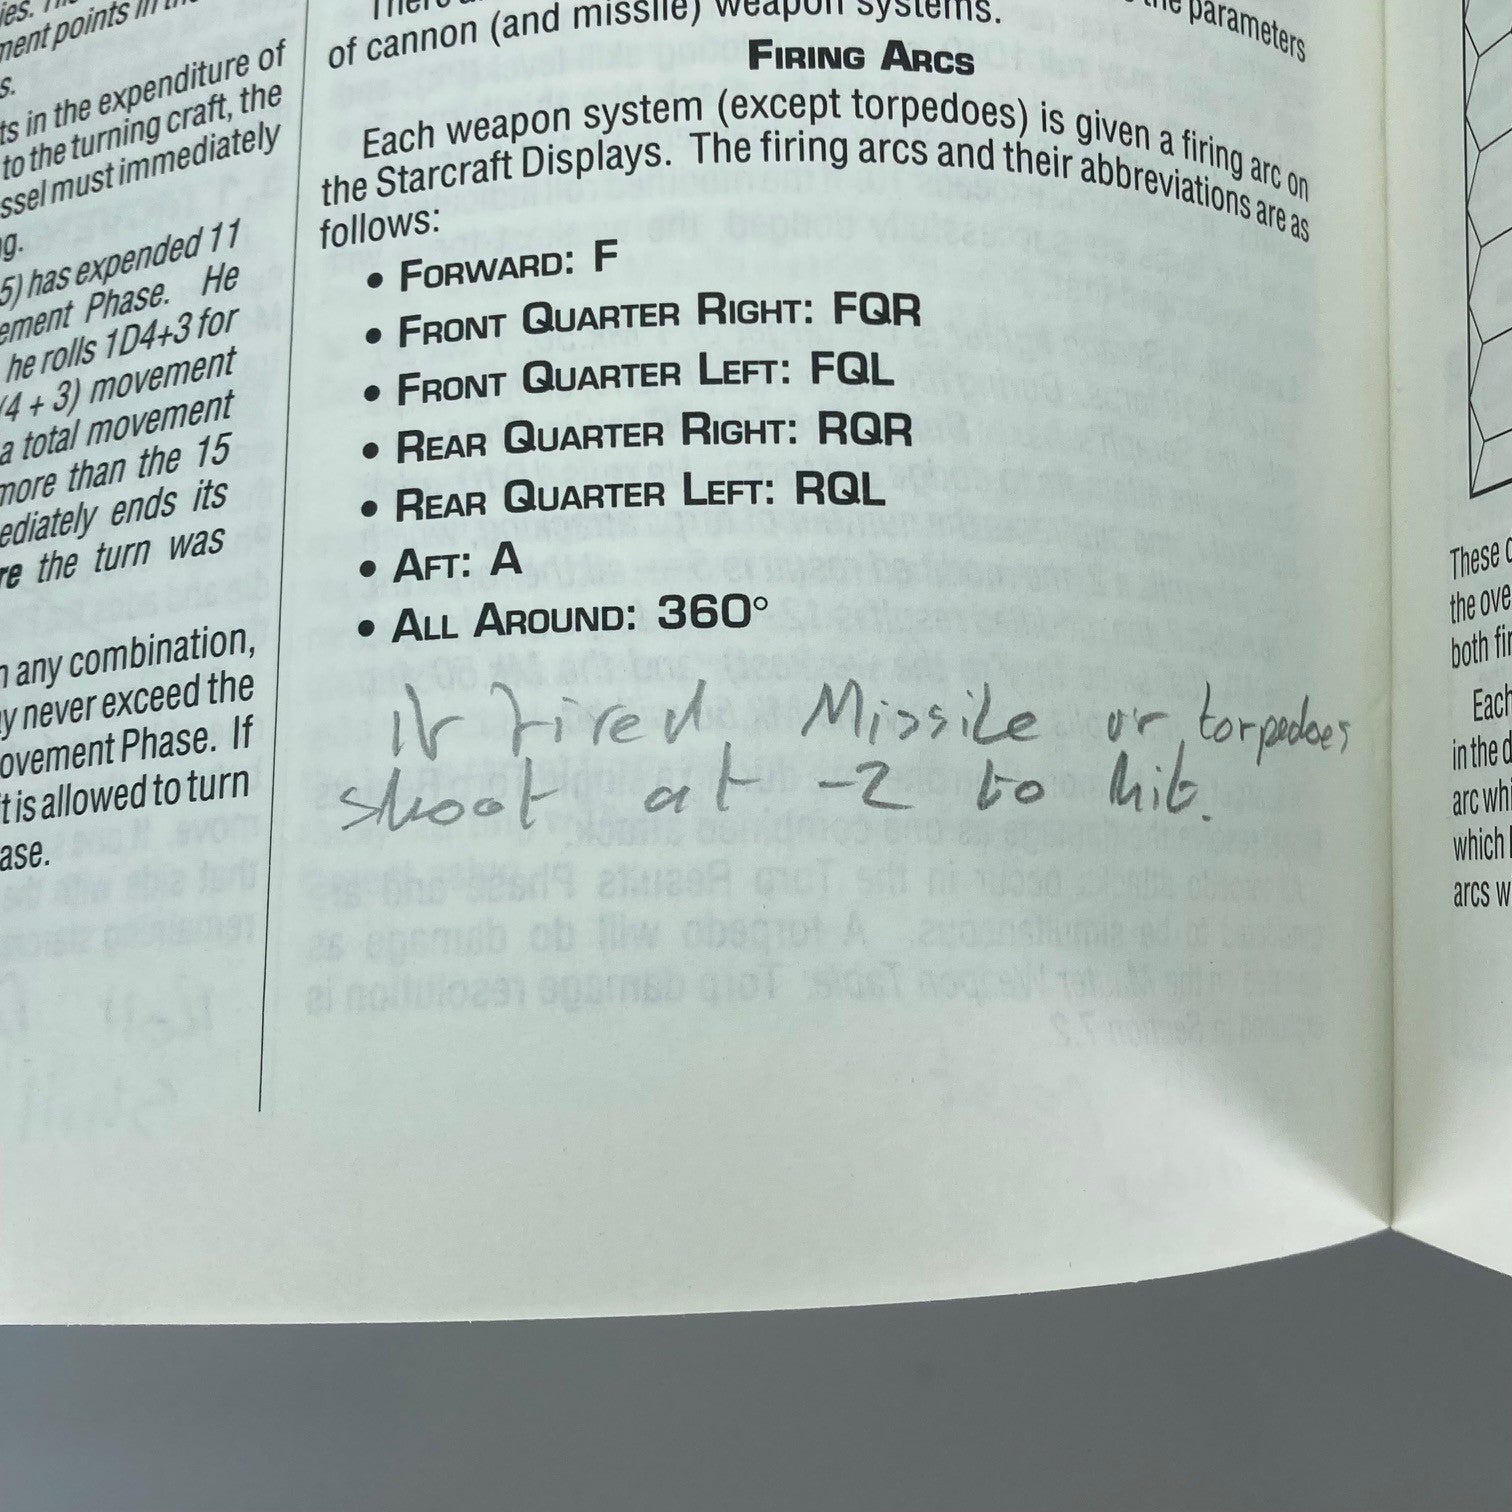 ment points in
s.
ts in the expenditure of
to the turning craft, the
ssel must immediately
g.
5) has expended 11
ement Phase. He
he rolls 1D4+3 for
(4 + 3) movement
a total movement
more than the 15
ediately ends its
re the turn was
n any combination,
y never exceed the
ovement Phase. If
t is allowed to turn
ase.
parameters
of cannon (and missile) weapon systems.
FIRING ARCS
Each weapon system (except torpedoes) is given a firing arc on
the Starcraft Displays. The firing arcs and their abbreviations are as
follows:
• FORWARD: F
• FRONT QUARTER RIGHT: FQR
• FRONT QUARTER LEFT: FQL
• REAR QUARTER RIGHT: RQR
• REAR QUARTER LEFT: RQL
• AFT: A
• ALL AROUND: 360°
If fired Missile or torpedoes
shoot at -2 to hit.
These
the ove
both fir
Each
in the d
arc whi
which
arcs w